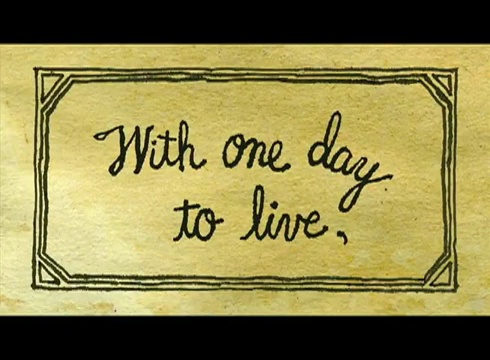 With one day
to live,